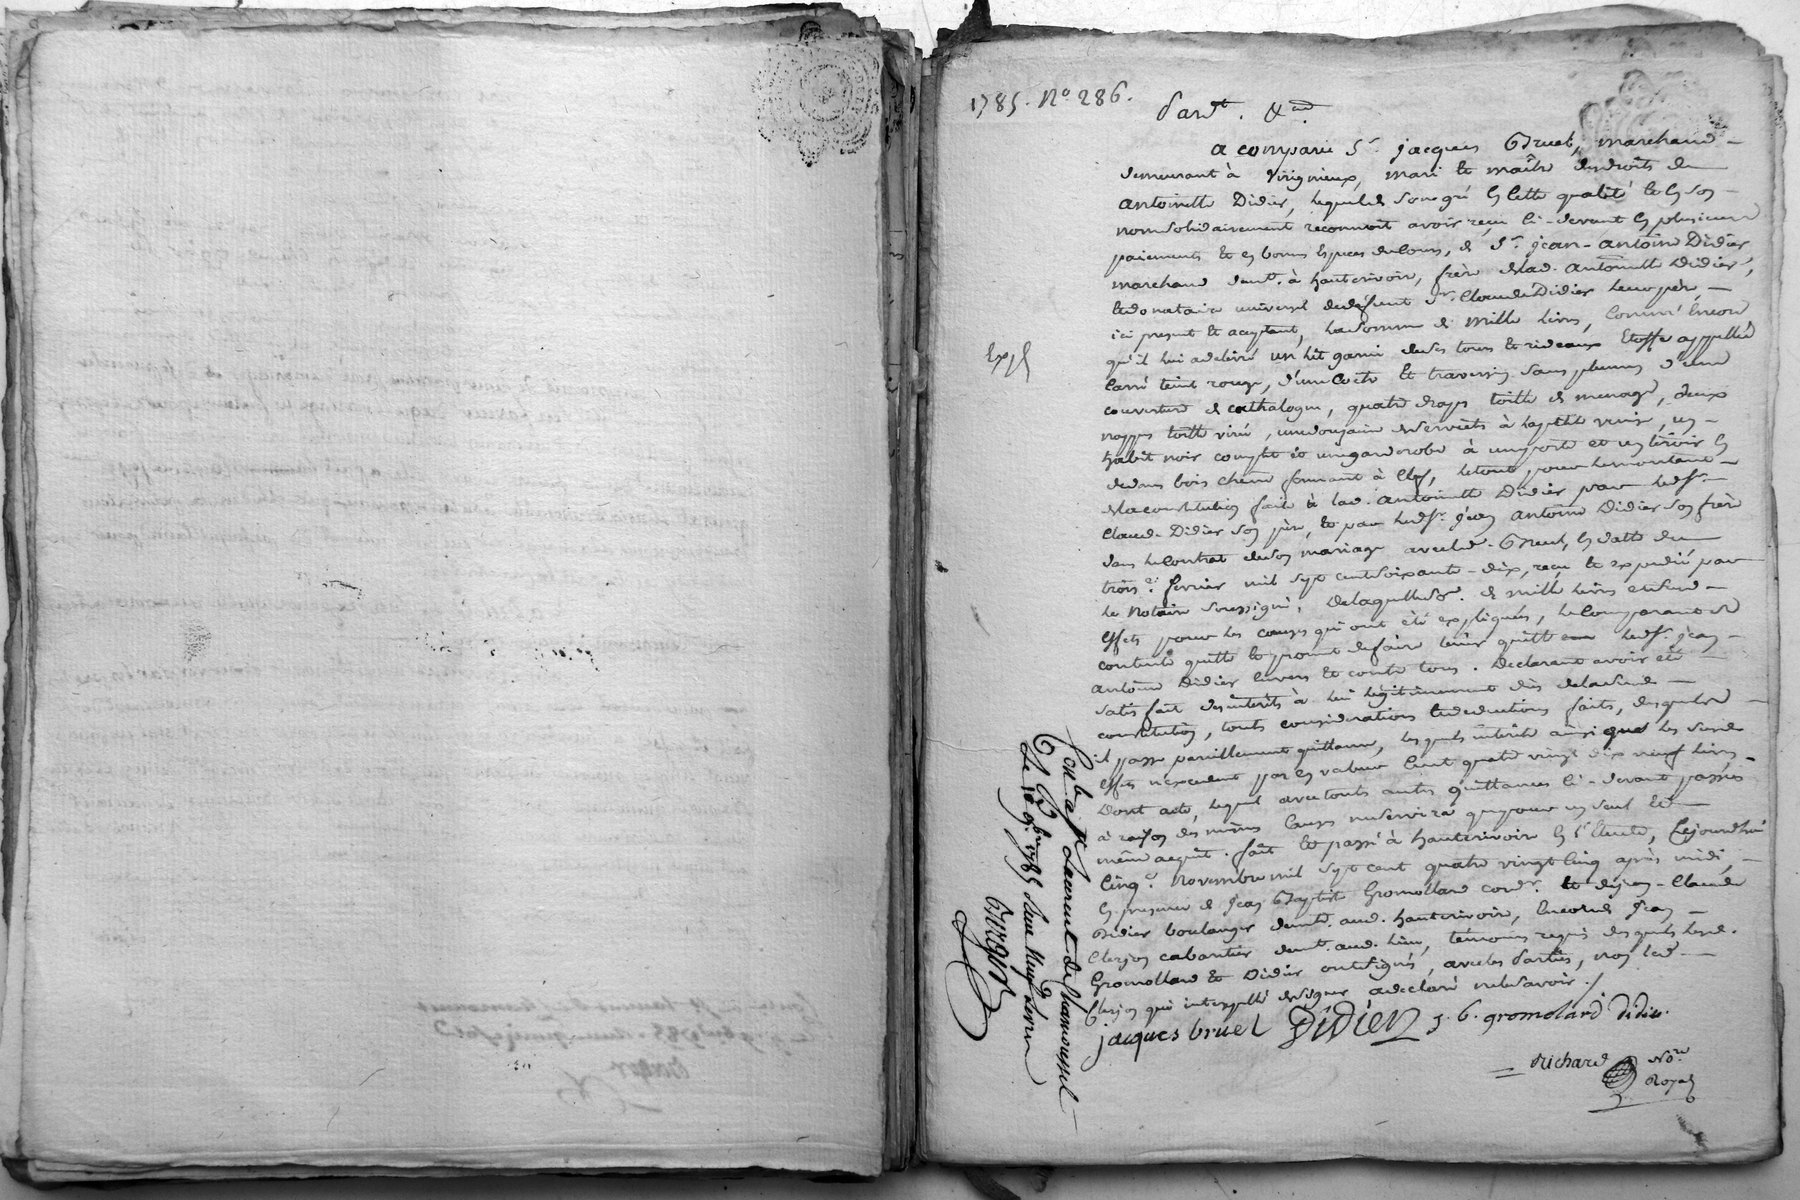 1785. No 286.
Pardt. &a.
a comparu Sr. jacques Bruel, marchand
demeurant à virignieux, mari et maître des droits de
antoinette Didier, lequel de son gré en cette qualité et en son
nom solidairement reconnoit avoir reçu ci-devant en plusieurs
paiements et en bonnes espèces de cours, de Sr. jean-antoine Didier
marchand demt. à hauterivoire, frère de lad. antoinette Didier,
et donataire universel de défunt Sr. Claude Didier leur père
ici present et acceptant, la somme de mille livres, comm'encore
qu'il lui a delivré un lit garni de ses tours et rideaux etoffe appellée
carré teint rouge, d'une coetre et traversin sans plumes d'une
couverture de cathalogne, quatre draps toille de menage, deux
nappes toille, une douzaine de serviettes à la petite venise, un
habit noir complet et une garderobe à une porte et un tiroir en
dedans bois chêne fermant à clef, le tout pour le montant
de la constitution faite à lad. antoinette Didier par led. Sr.
Claude Didier son père, et par led. Sr. jean antoine Didier son frère
dans le contrat de son mariage avec led. Bruel, en datte du
trois e. fevrier mil sept cent soixante-dix, reçu et expedié par
le Notaire soussigné, de laquelle so. de mille livres et susd.
effets pour les causes qui ont été expliquées, le comparant se
contente quitte et promet de faire tenir quitte led. Sr. jean
antoine Didier envers et contre tous. Declarant avoir été
satisfait des interêts à lui legitimement dûs de la susd.
constitution, toutes considerations et deductions faites, desquels
il passe pareillement quittance, lesquels interêts ainsi que les susd.
effets n'excedent pas en valeur cent quatre vingt dix neuf livres,
Dont acte, lequel avec toutes autres quittances ci-devant passées
à raison des mêmes causes ne servira que pour un seul et
même acquit. fait et passé à hauterivoire en l'étude, cejourd'hui
cinq e. Novembre mil sept cent quatre vingt cinq après midi,
en presence de jean Baptiste Gromollard cordr. et de jean-Claude
Didier boulanger demt. aud. hauterivoire, encore de jean
Clerjon cabaretier demt. aud. lieu, témoins requis desquels lesd.
Gromollard et Didier ont signé, avec les parties, non led.
Clerjon qui interpellé de signer a declaré ne le savoir ./.
jacques bruel Didier j. b. gromolard didier.
Richard Nore
Royal
Expé
Con. le a St Laurent de chamousset
Le 10 9bre 1785